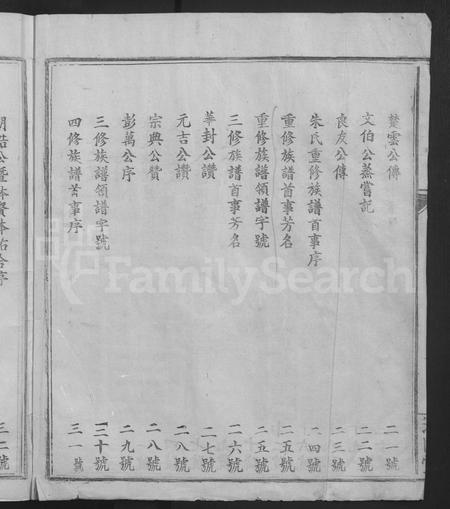 雲公傳 二一號
文伯公蒸嘗記 二二號
良友公傳 二三號
朱氏重修族譜首事序 二四號
重修族譜首事芳名 二五號
重修族譜領譜字號 二五號
三修族譜首事芳名 二六號
華封公讚 二七號
元吉公讚 二八號
宗典公贊 二八號
彭萬公序 二九號
三修族譜領譜字號 三十號
四修族譜首事序 三一號
公暨 合序 三二號
FamilySearch